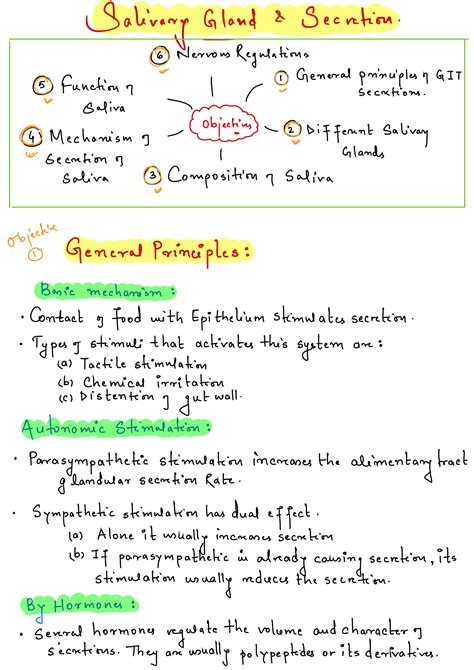 Salivary Gland & Secretion.
⑥ Nervous Regulations
① General principles of GIT
secretions.
⑤ Function of
Saliva
Objectives
② Different Salivary
Glands
④ Mechanism of
Secretion of
Saliva
③ Composition of Saliva
Objective
①
General Principles:
Basic mechanism:
· Contact of food with Epithelium stimulates secretion.
· Types of stimuli that activates this system are:
(a) Tactile stimulation
(b) Chemical irritation
(c) Distention of gut wall.
Autonomic Stimulation:
· Parasympathetic stimulation increases the alimentary tract
glandular secretion Rate.
· Sympathetic stimulation has dual effect.
(a) Alone it usually increases secretion
(b) If parasympathetic is already causing secretion, its
stimulation usually reduces the secretion.
By Hormones:
· Several hormones regulate the volume and character of
secretions. They are usually polypeptides or its derivatives.